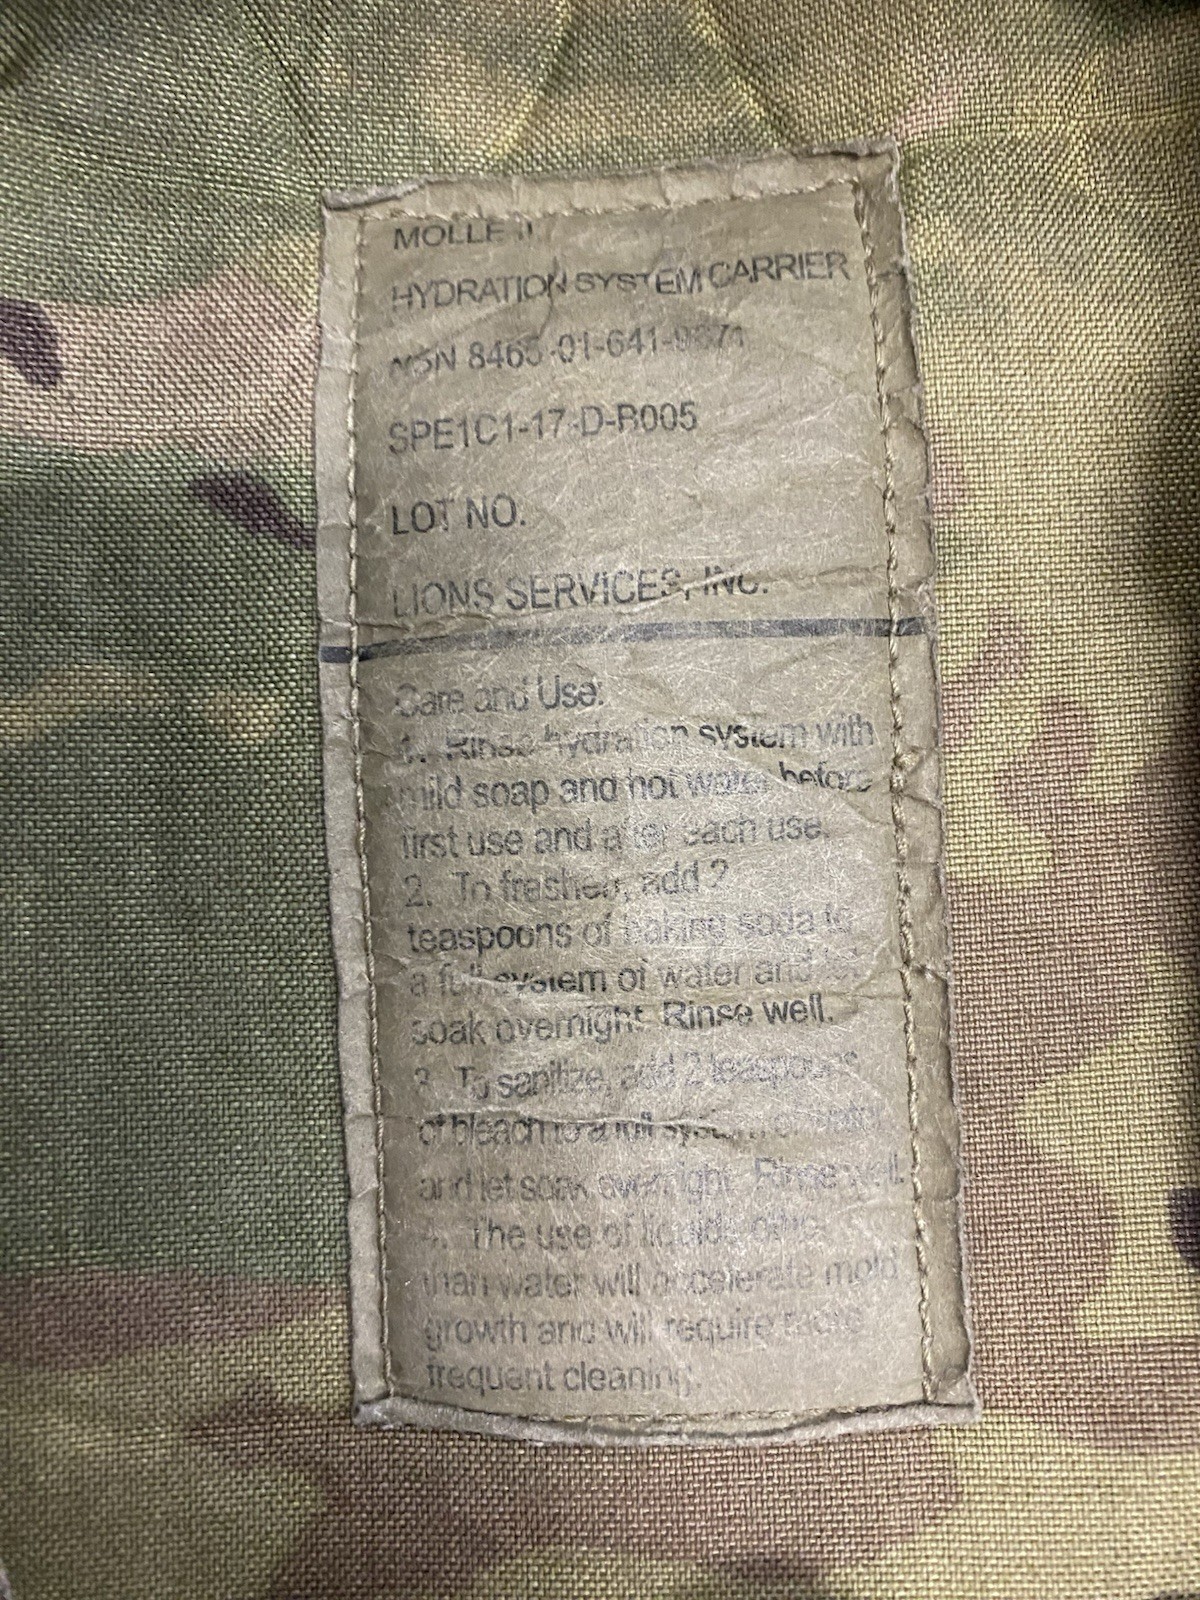 MOLLE II
HYDRATION SYSTEM CARRIER
NSN 8465-01-641-
SPE1C1-17-D-B005
LOT NO.
LIONS SERVICES, INC.
Care and Use:
1. Rinse hydration system with
mild soap and hot water before
first use and after each use.
2. To freshen, add 2
teaspoons of baking soda to
a full system of water and let
soak overnight. Rinse well.
3. To sanitize, add 2 teaspoons
of bleach to a full system of water
and let soak overnight. Rinse well.
4. The use of liquids other
than water will accelerate mold
growth and will require more
frequent cleaning.